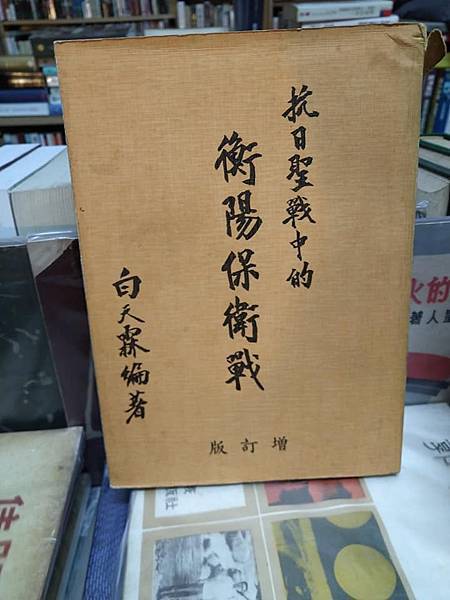 抗日聖戰中的
衡陽保衛戰
白天霖編著
增訂版
火的
人